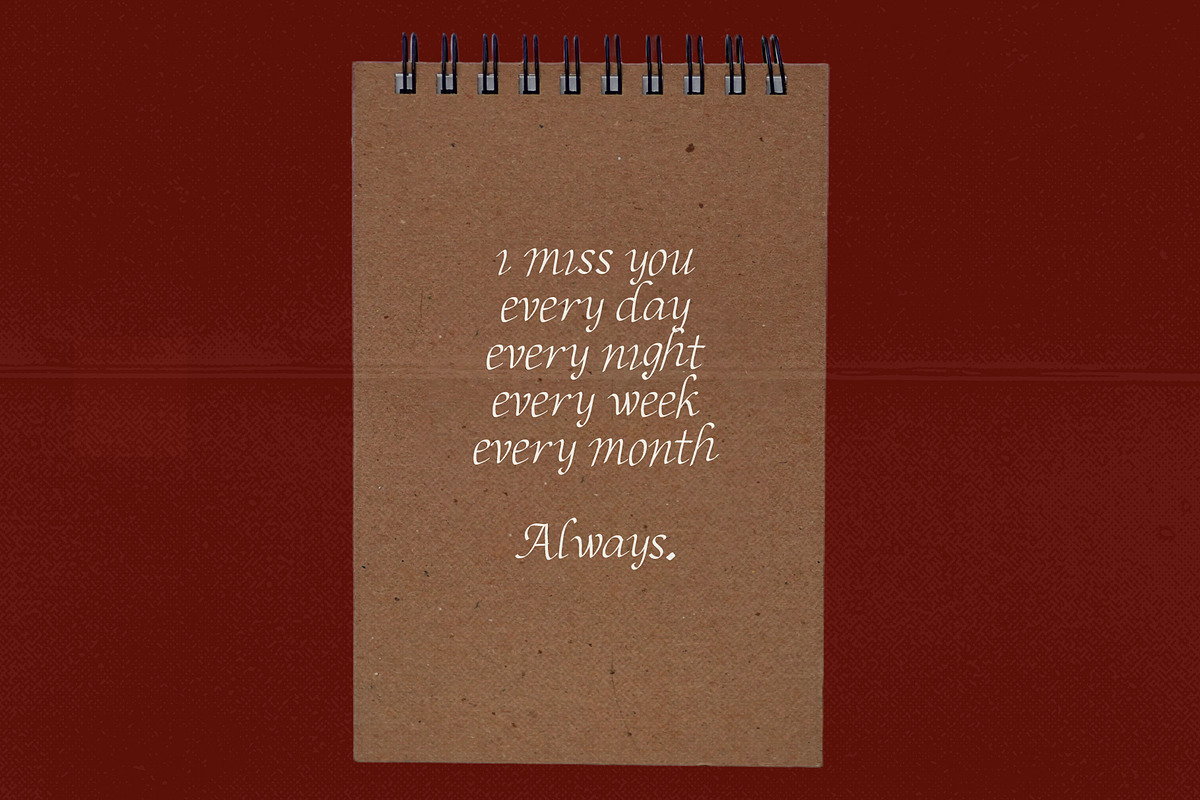 i miss you
every day
every night
every week
every month
Always.